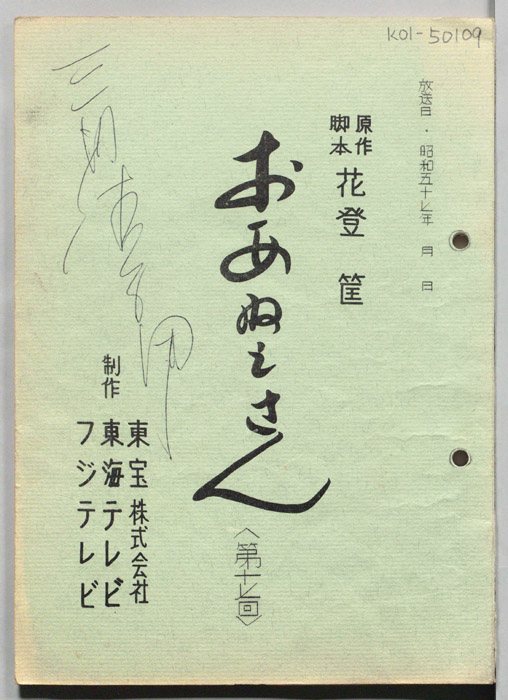 K01-50109
放送日・昭和五十七年　月　日
原作
脚本
花登 筐
おあねえさん
〈第十七回〉
制作
東宝株式会社
東海テレビ
フジテレビ